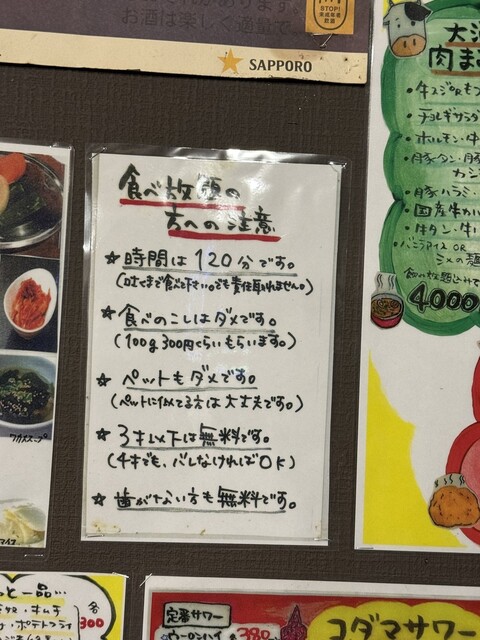 お酒は楽しく適量で
STOP!
SAPPORO
食べ放題の
方への注意
☆時間は120分です。
(吐くまで食べて下さい。でも責任取れません。)
☆食べのこしはダメです。
(100g 300円くらいもらいます。)
☆ペットもダメです。
(ペットに似てる方は大丈夫です。)
☆3才以下は無料です。
(4才でも、バレなければOK)
☆歯がない方も無料です。
ワカメスープ
アイス
・牛スジ
・チョレギサラダ
・ホルモン・牛
・豚タン・豚
・豚ハラミ・
・国産牛カル
・牛タン・牛
・バニラアイス OR
シメの麺
飲み放題
4000
・ポテトフライ
各
300
定番サワー
ウーロンハイ
380
コダマサワー